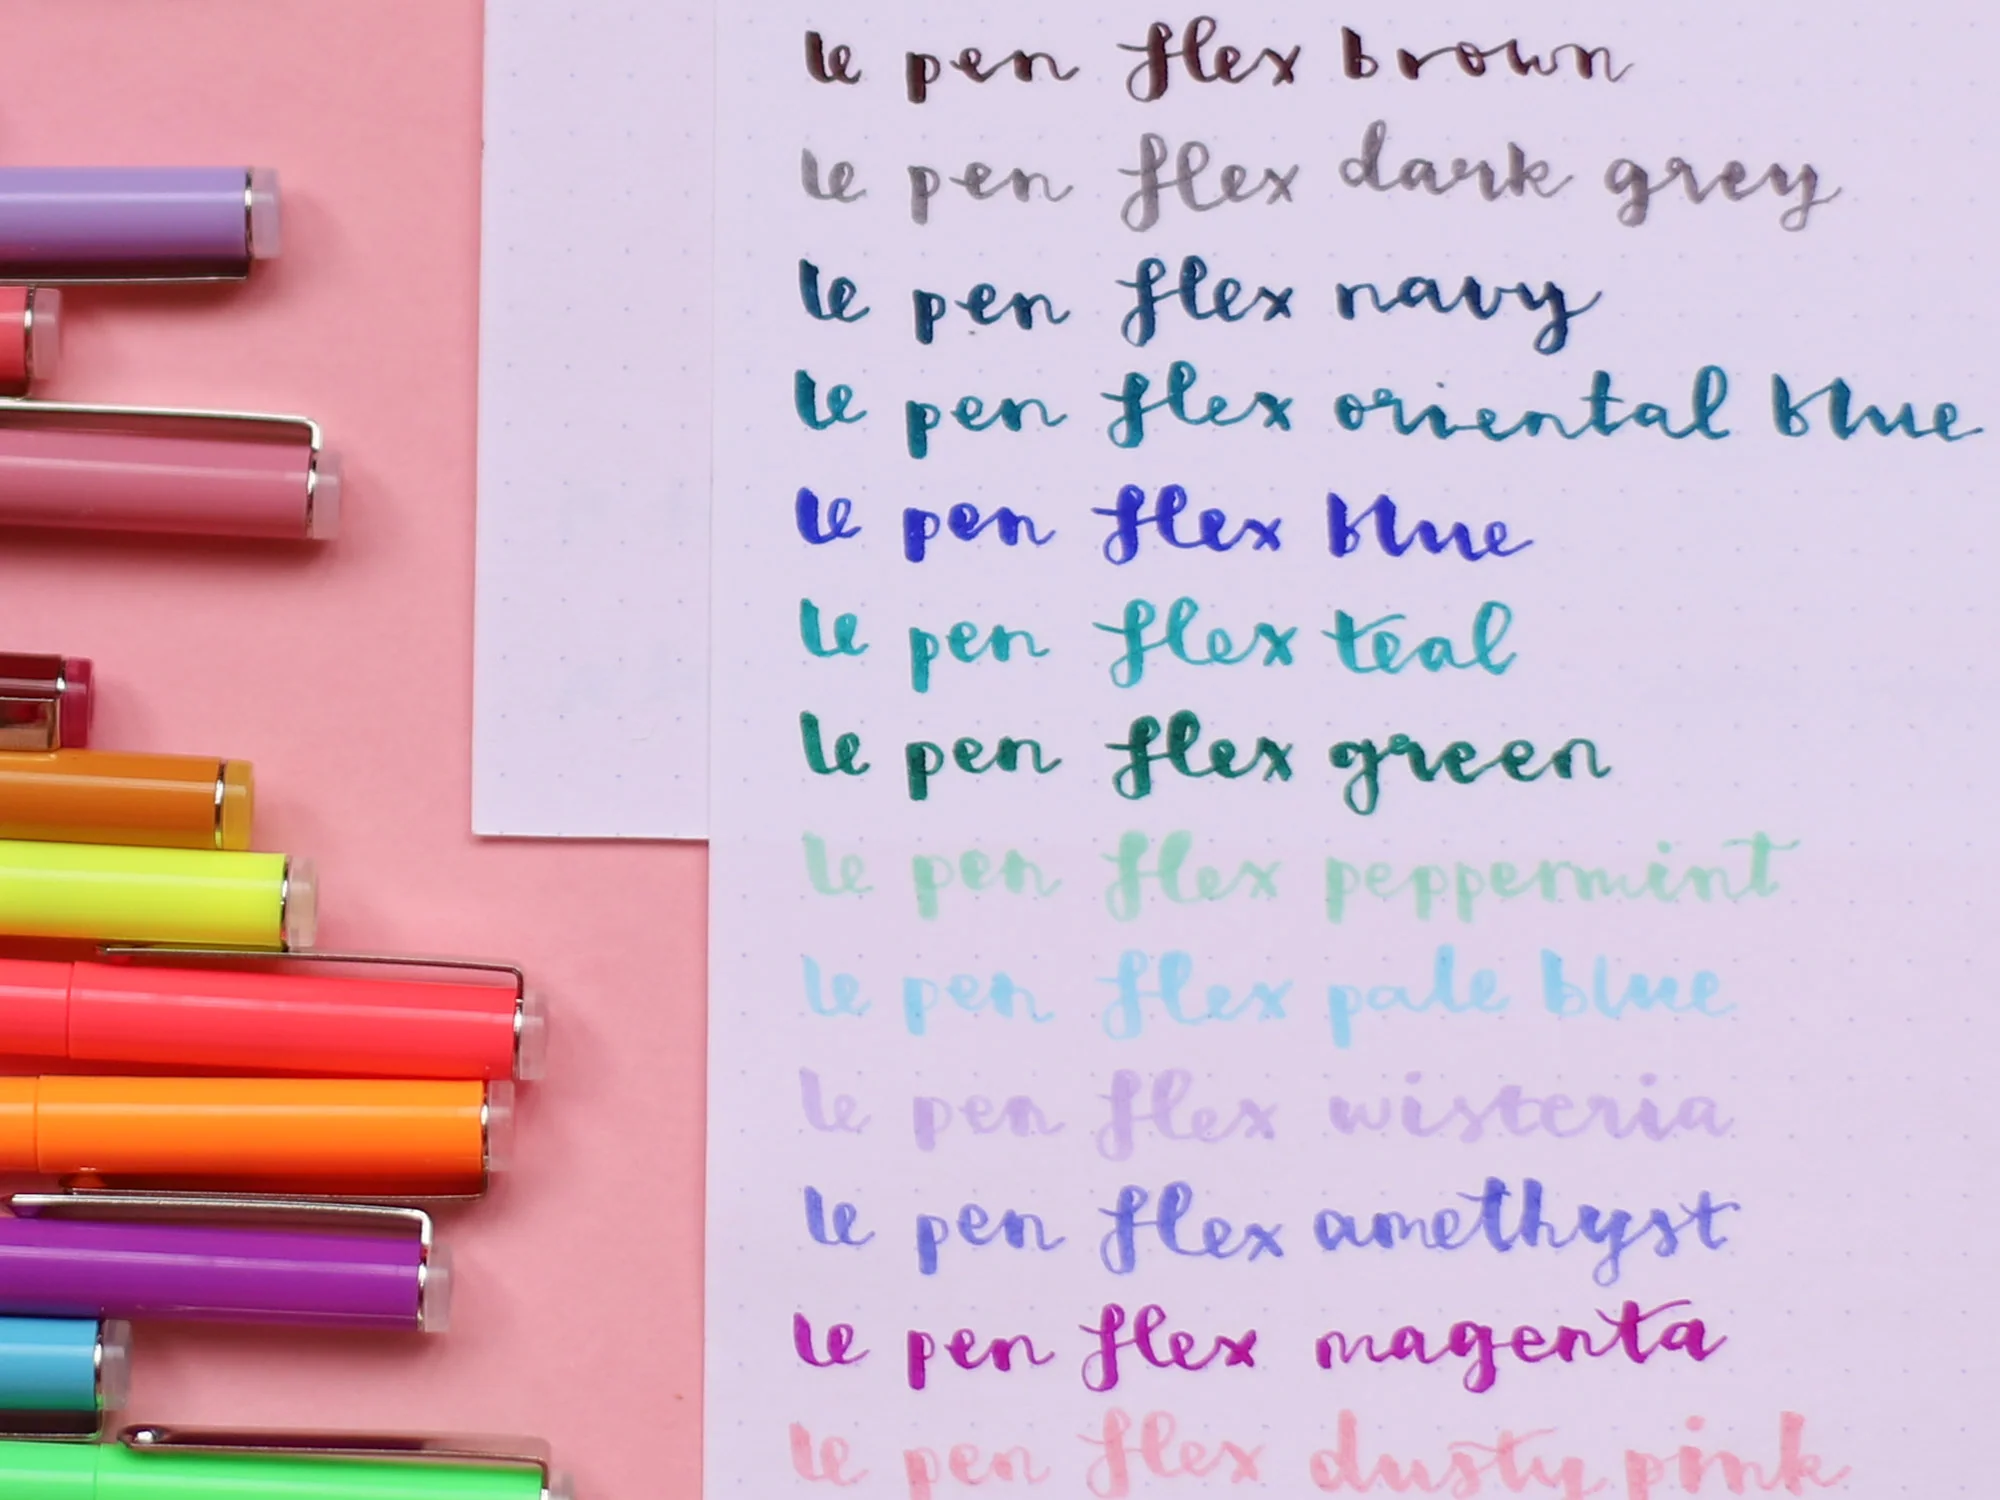 le pen flex brown
le pen flex dark grey
le pen flex navy
le pen flex oriental blue
le pen flex blue
le pen flex teal
le pen flex green
le pen flex peppermint
le pen flex pale blue
le pen flex wisteria
le pen flex amethyst
le pen flex magenta
le pen flex dusty pink